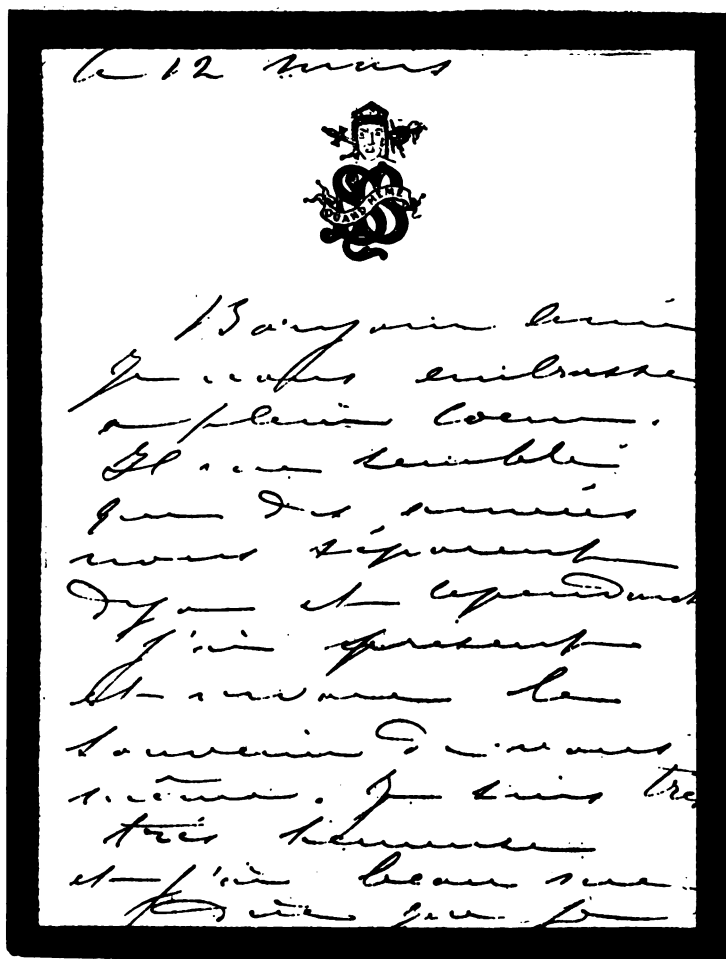 le 12 mars
QUAND MEME
Bonjour
Je vous embrasse
a plein coeur.
Il me semble
que des années
nous séparent
déja et cependant
j'ai present
et vivace le
souvenir de vous
même. Je suis très
très heureuse
et j'ai beau me
dire que je